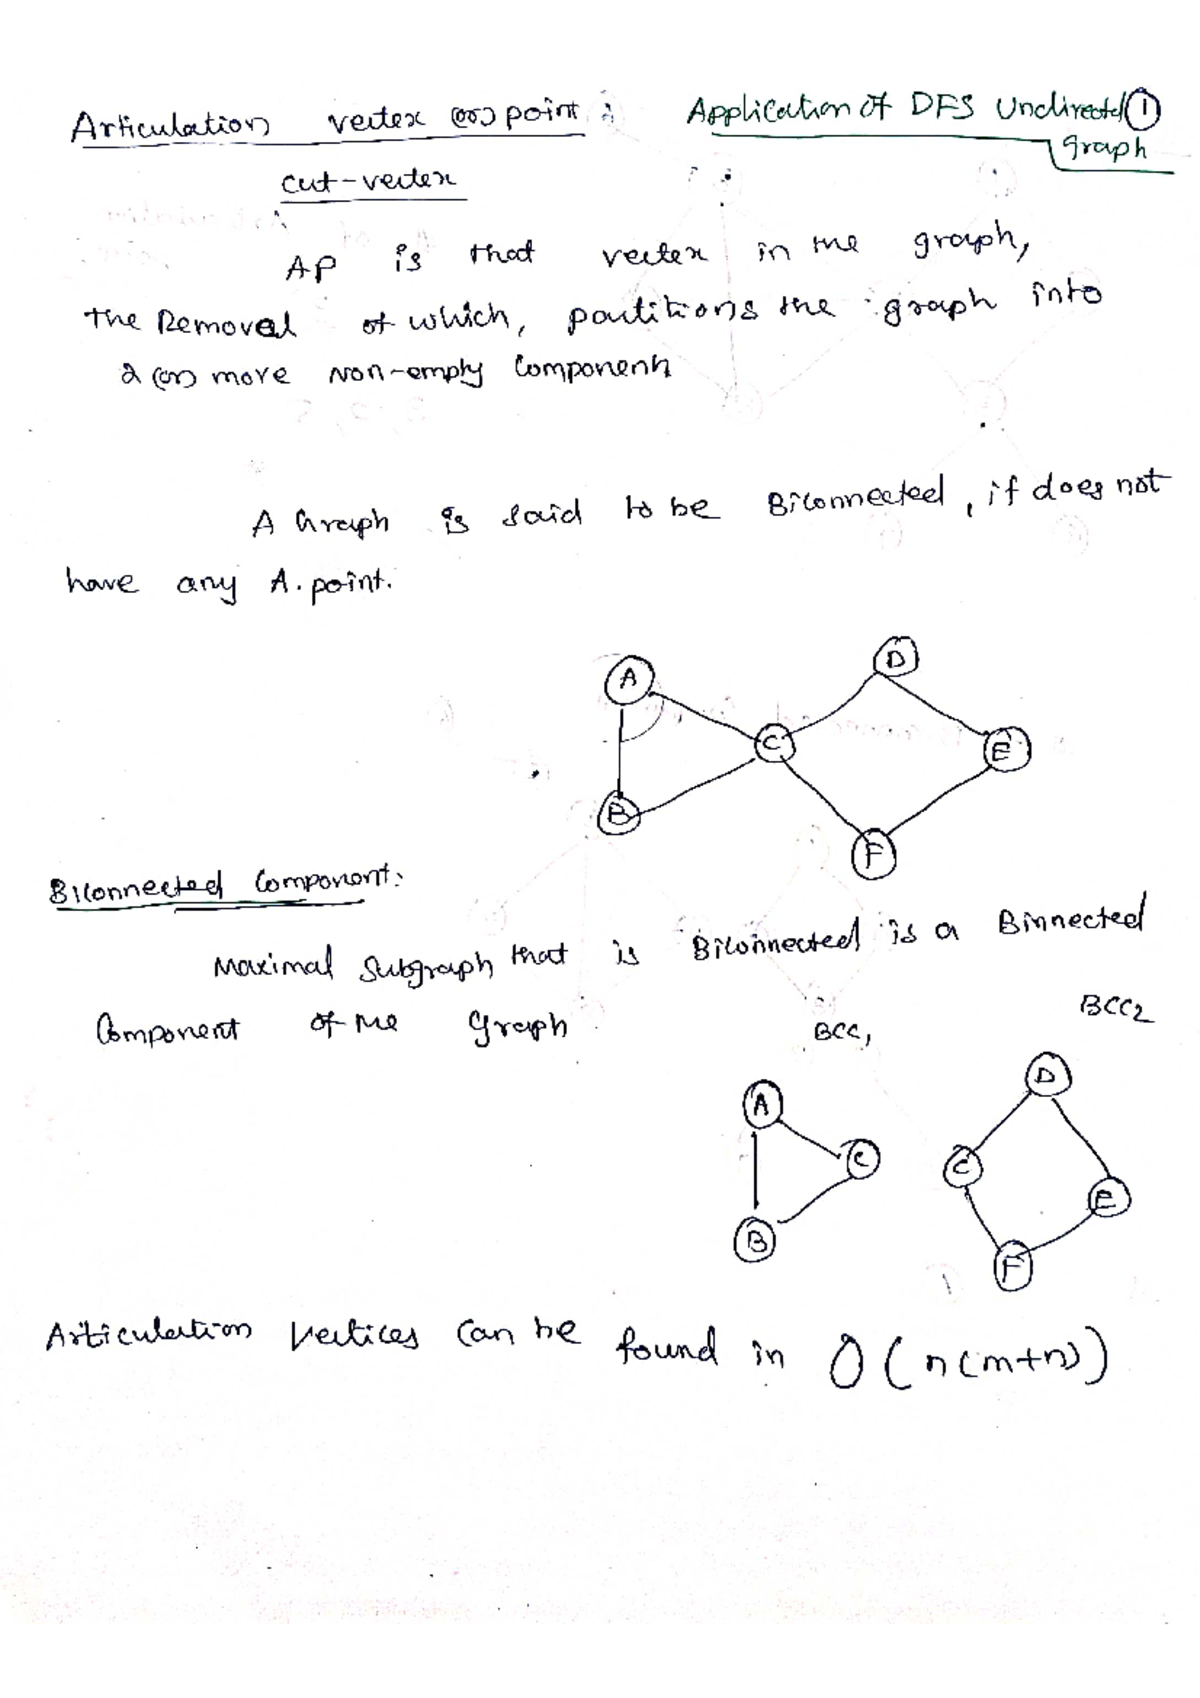 Articulation vertex (or) point :
Application of DFS Undirected ①
graph
cut-vertex
AP is that vertex in the graph,
the Removal of which, partitions the graph into
2 (or) more Non-empty Components
A Graph is said to be Biconnected, if does not
have any A. point.
A
D
C
E
B
F
Biconnected Component:
Maximal Subgraph that is Biconnected is a Binnected
Component of the Graph
BCC1
BCC2
A
C
B
D
C
E
F
Articulation Vertices Can be found in O(n(m+n))